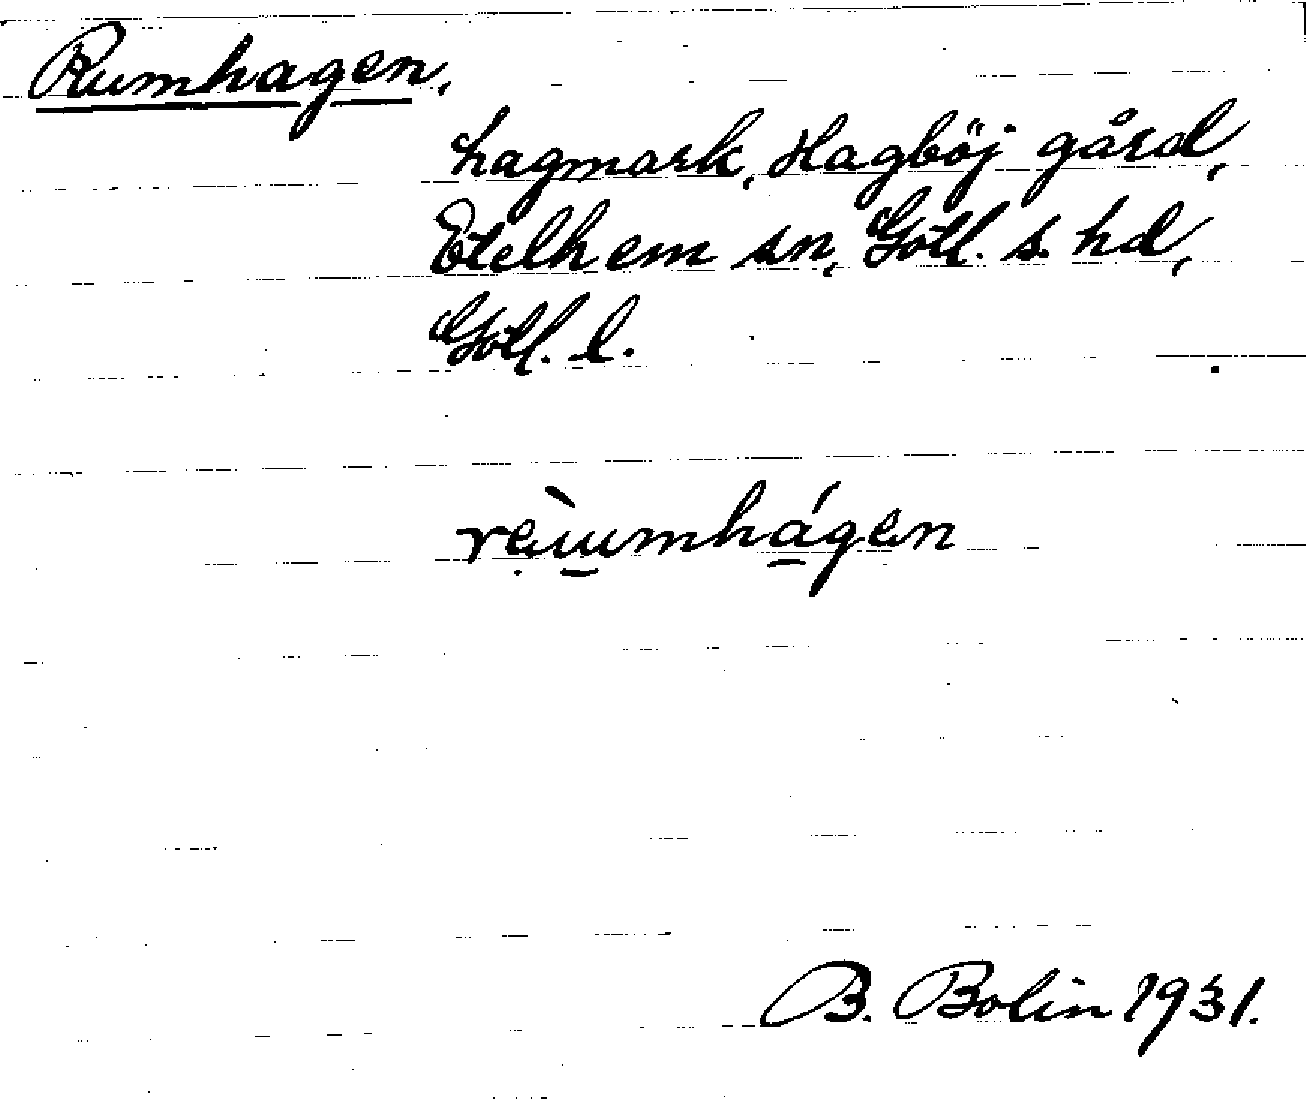 Rumhagen,
hagmark, Hagböj gård,
Etelhem sn, Gotl. s. hd,
Gotl. l.
rẹ̀u̱mhá̱gen
B. Bolin 1931.